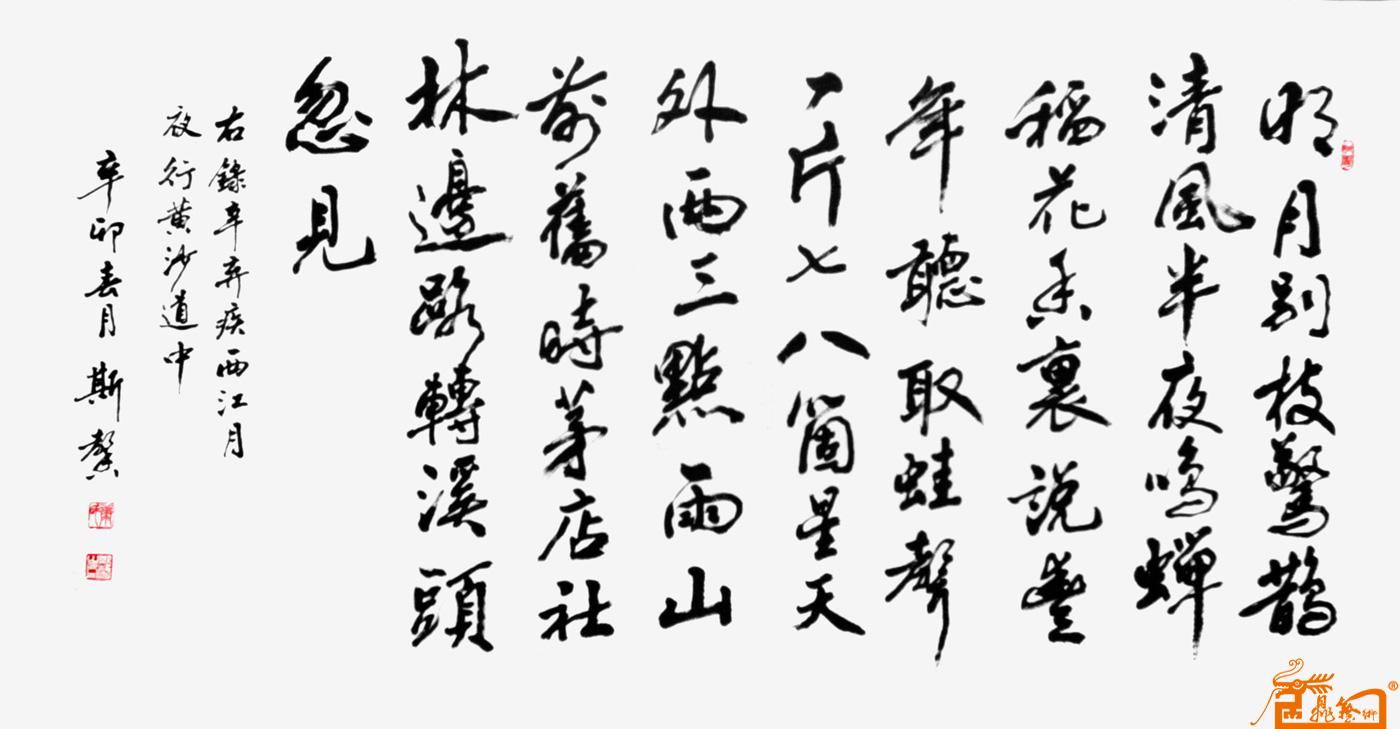 明月別枝驚鵲
清風半夜鳴蟬
稻花香裏說豐
年聽取蛙聲
一片七八箇星天
外兩三點雨山
前舊時茅店社
林邊路轉溪頭
忽見
右錄辛弃疾西江月
夜行黃沙道中
辛卯春月斯